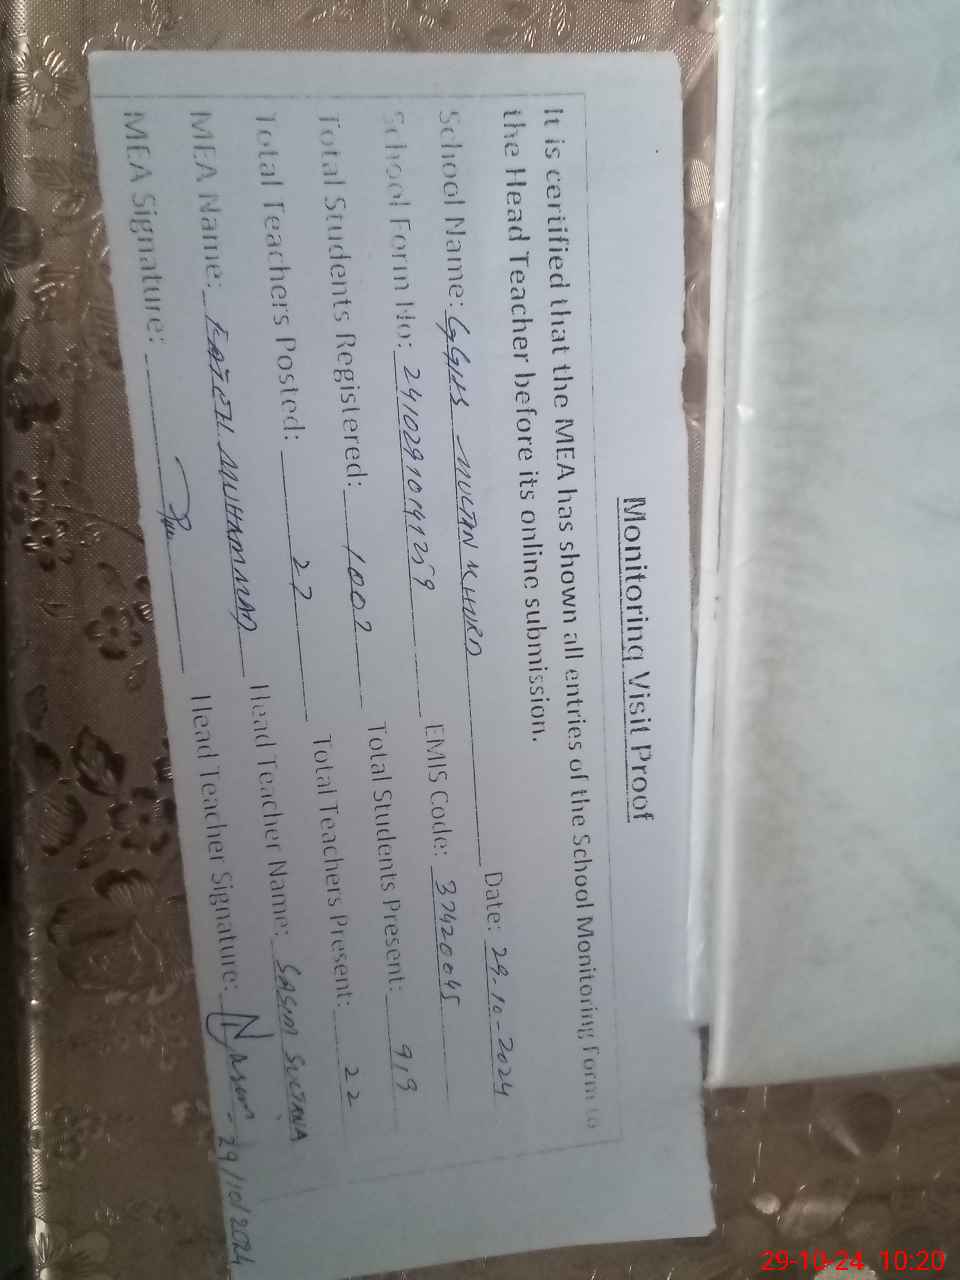 Monitoring Visit Proof
It is certified that the MEA has shown all entries of the School Monitoring Form to
the Head Teacher before its online submission.
School Name: GGHS MULTAN KHURD Date: 29-10-2024
School Form No: 24102910141259 EMIS Code: 37420045
Total Students Registered: 1002 Total Students Present: 919
Total Teachers Posted: 22 Total Teachers Present: 22
MEA Name: MUHAMMAD Head Teacher Name: SULTANA
MEA Signature: Head Teacher Signature: 29/10/2024
29-10-24 10:20